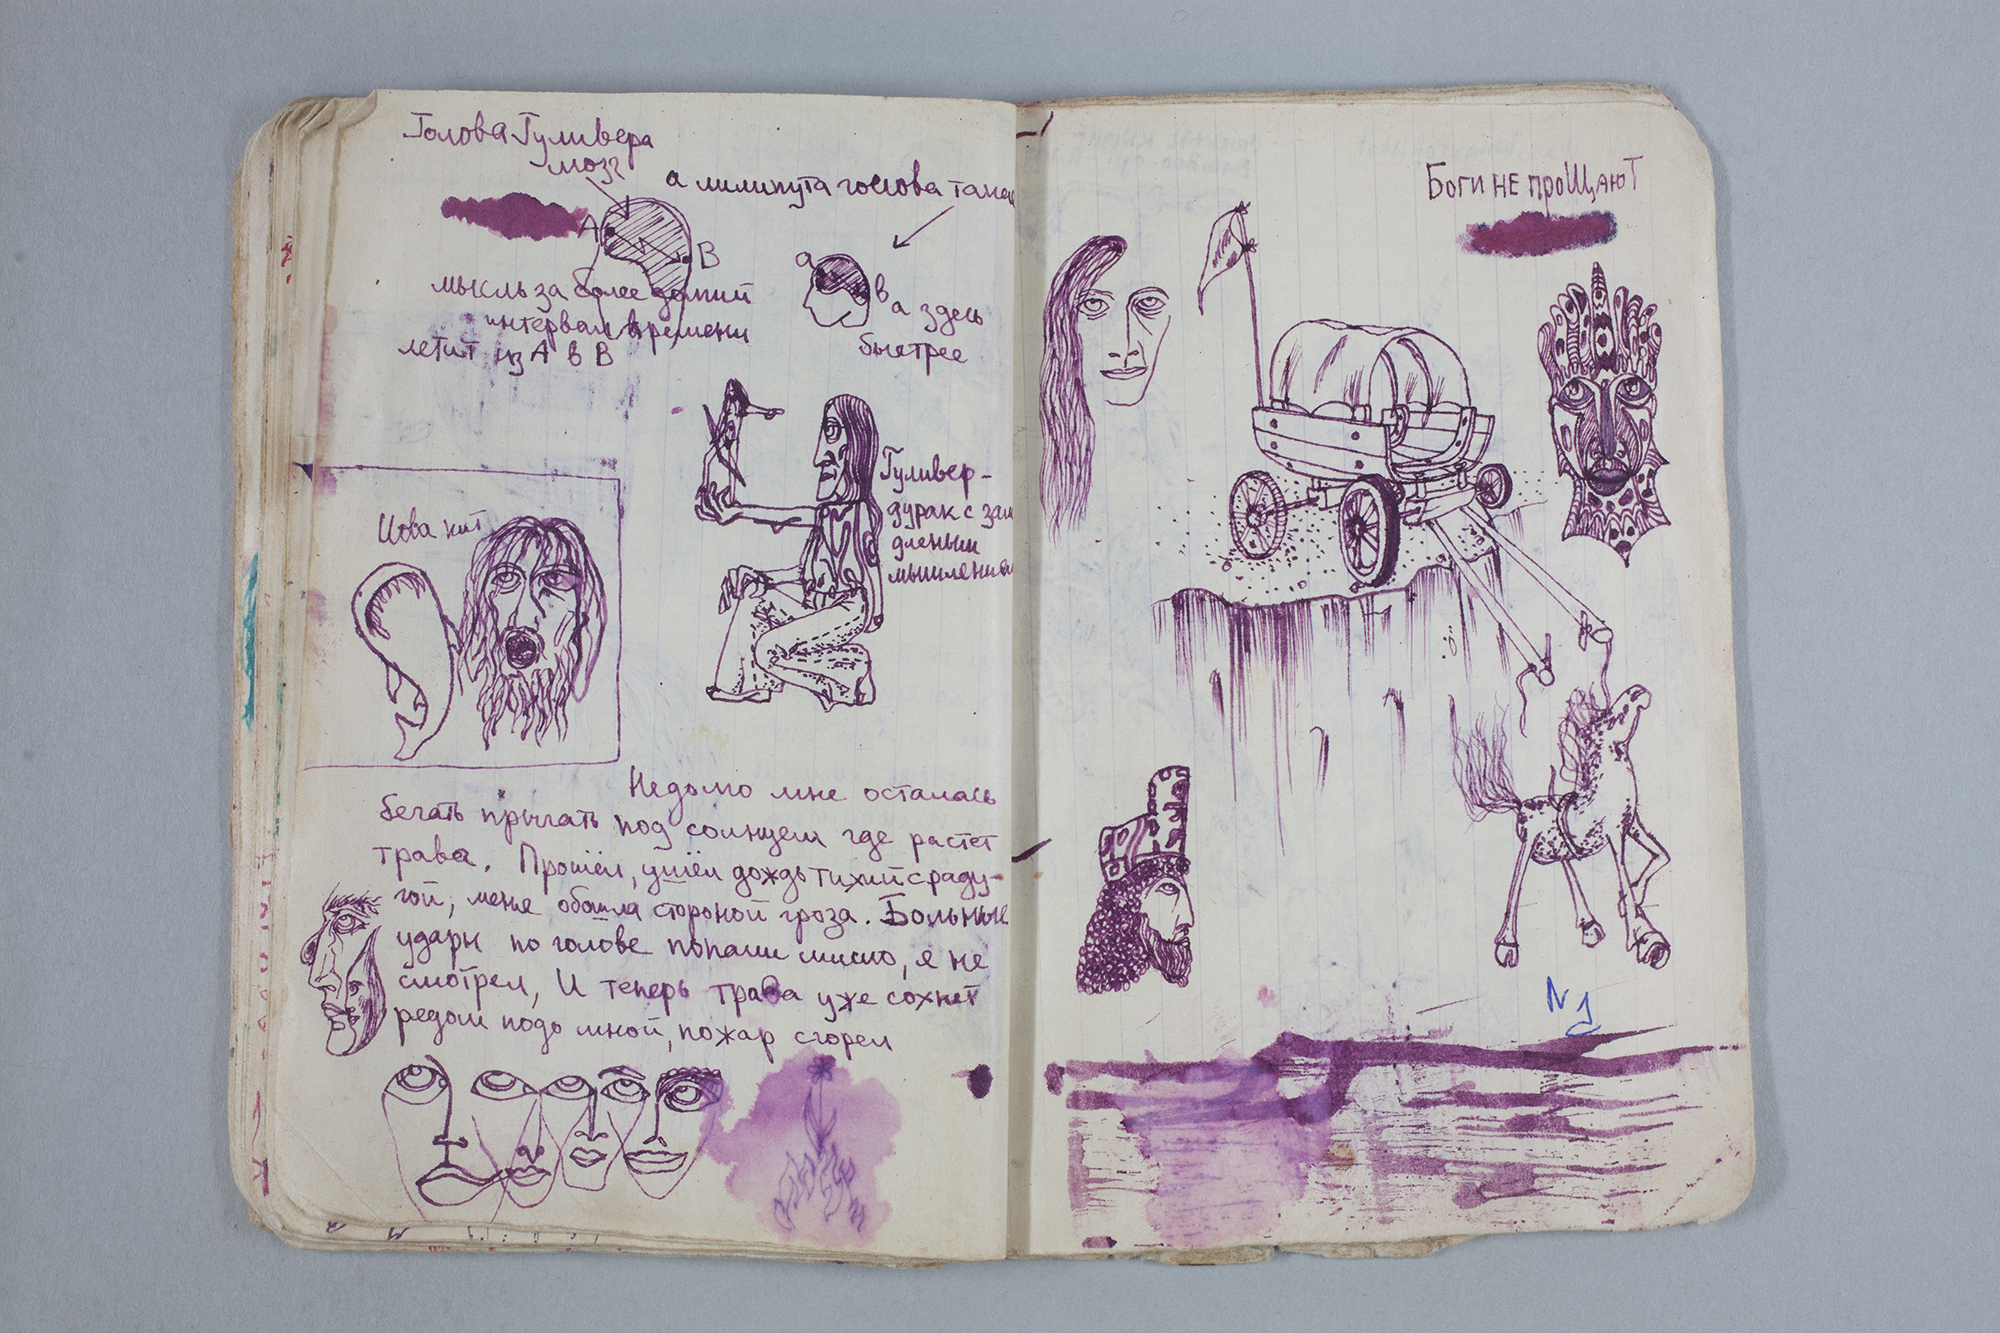 Голова Гуливера
мозг
а лилипута голова такая
А
В
а
в
мысль за более домий
интервал времени
летит из А в В
а здесь
быстрее
Гуливер -
дурак с зам
дленым
мышлением
Иова кит
Недолго мне осталась
бегать прыгать под солнцем где растет
трава. Прошёл, ушёл дождь тихий с раду-
гой, меня обошла стороной гроза. Больные
удары по голове попали мимо, я не
смотрел, И теперь трава уже сохнет
редом подо мной, пожар сгорел
Боги не проЩают